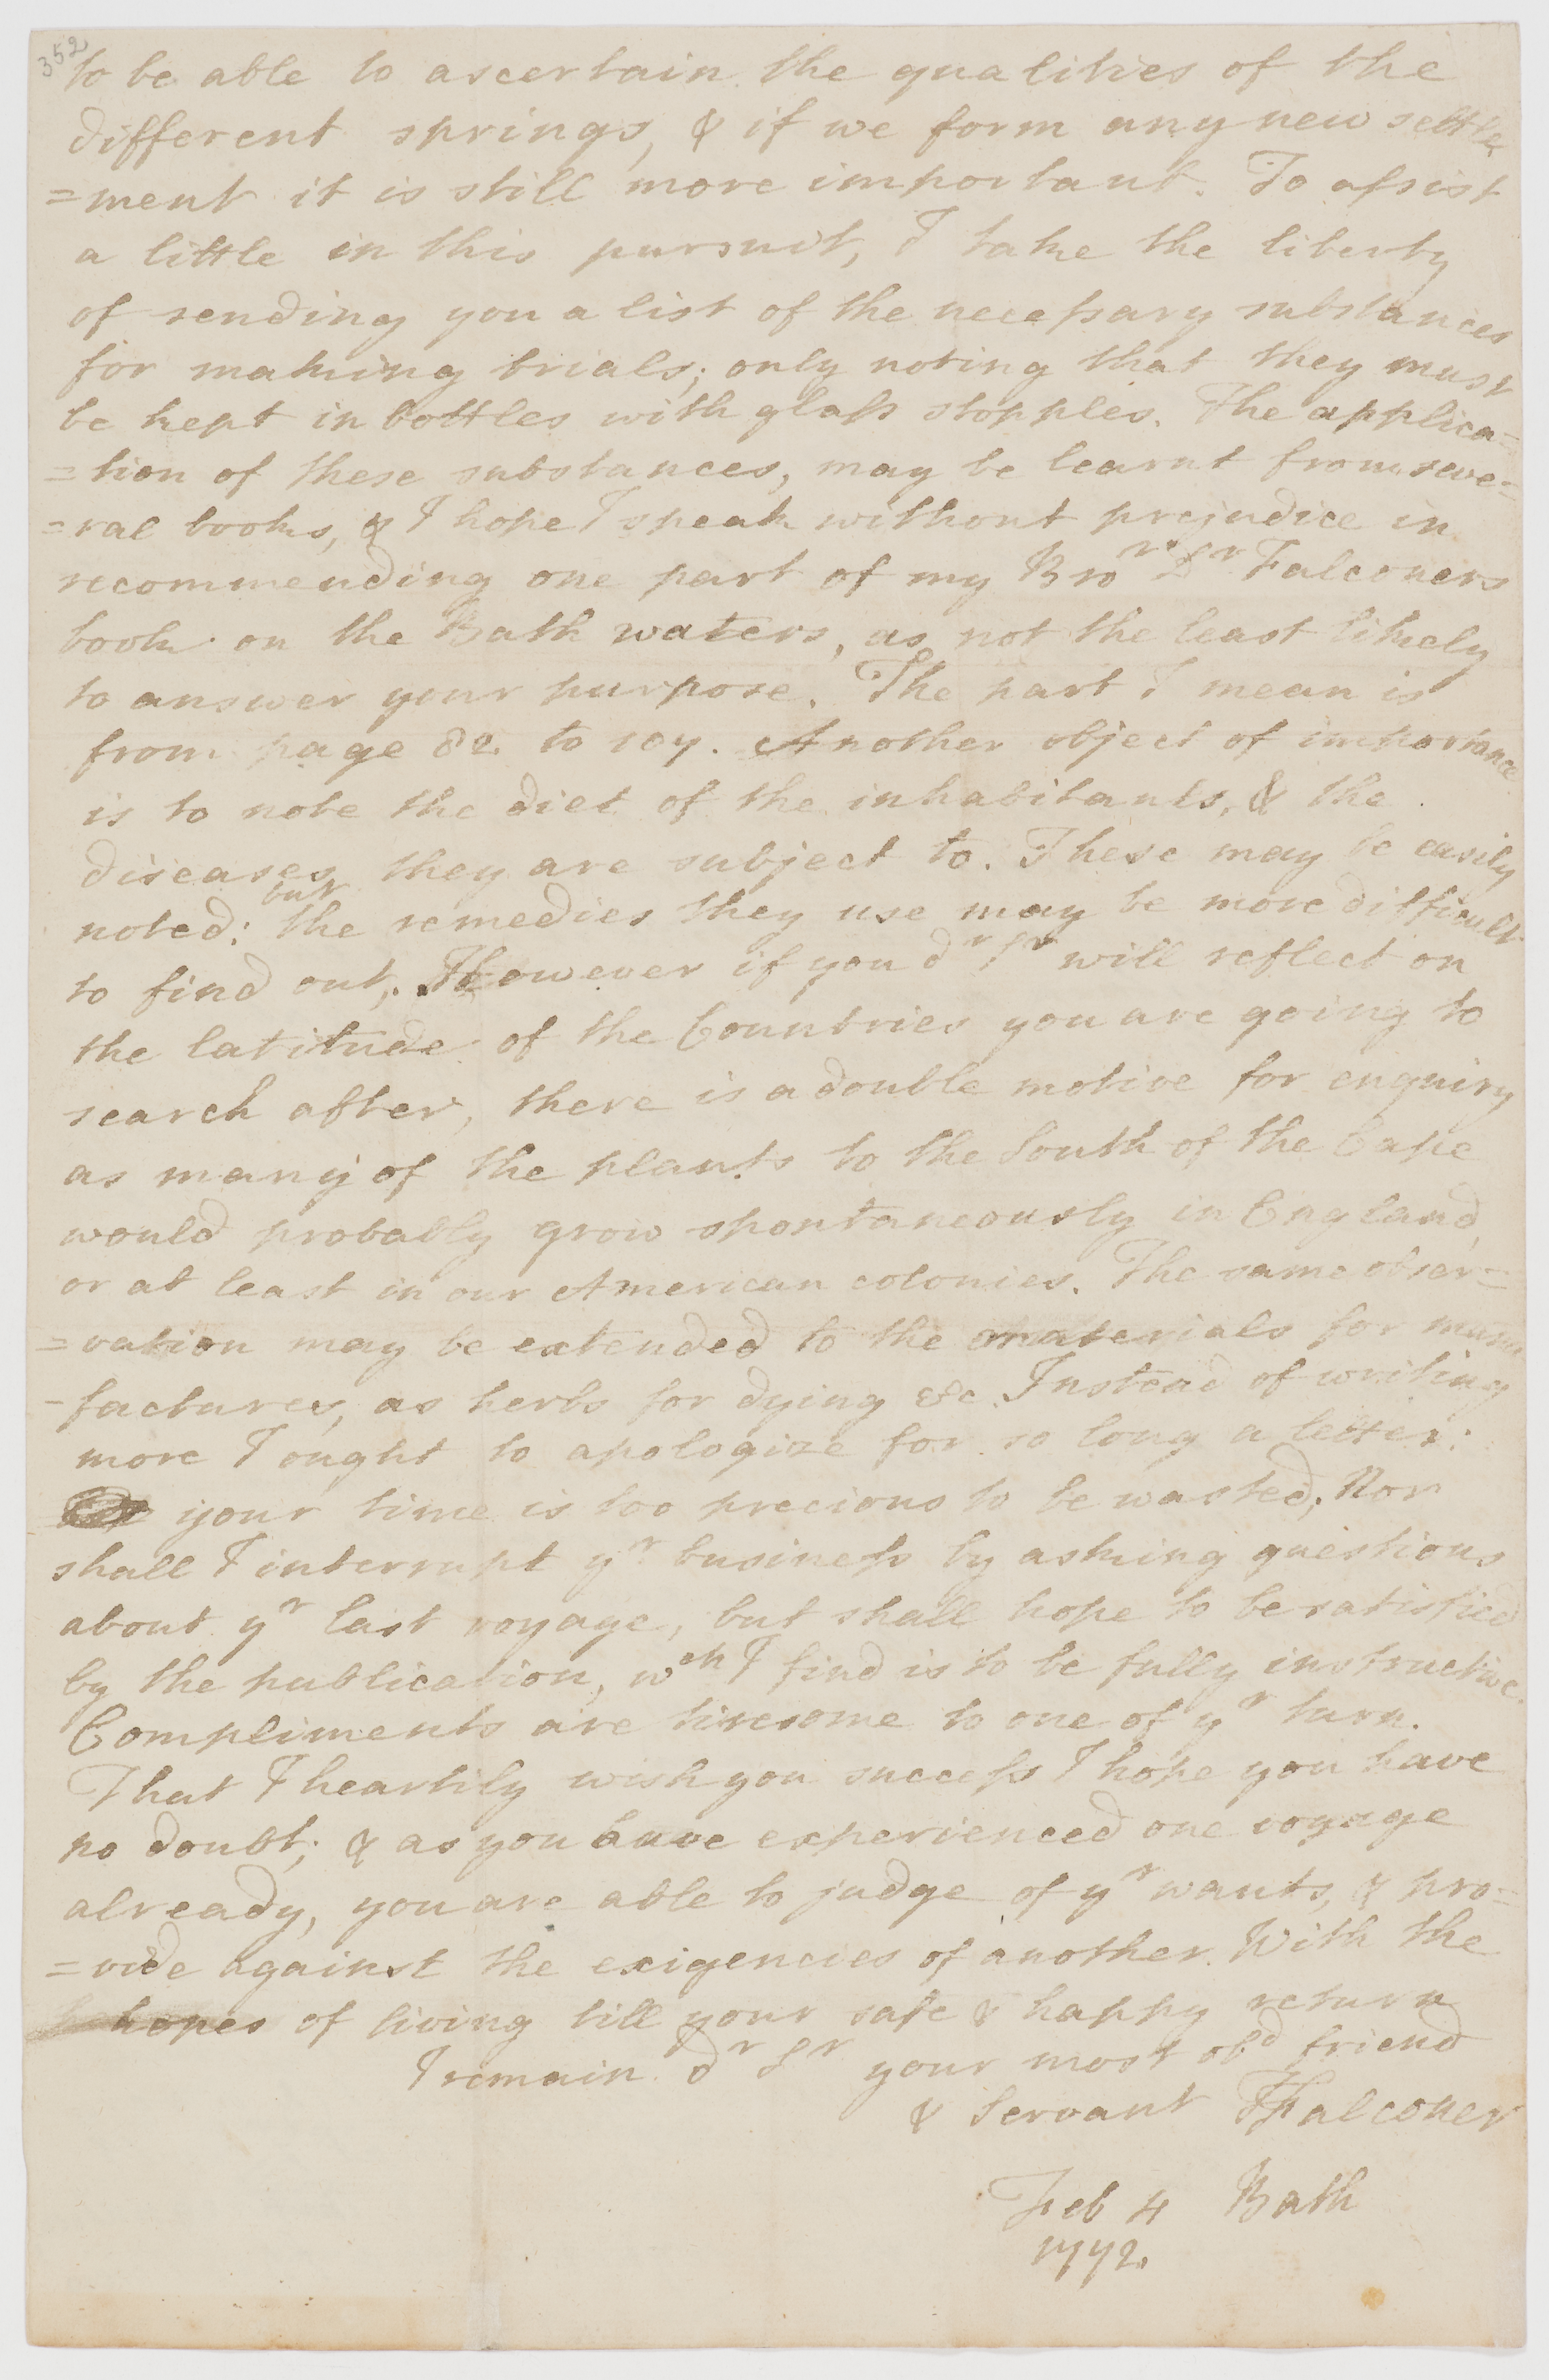 352
to be able to ascertain the qualities of the
different springs, & if we form any new settle
=ment it is still more important. To assist
a little in this pursuit, I take the liberty
of sending you a list of the necessary substances
for making trials; only noting that they must
be kept in bottles with glass stopples. The applica=
=tion of these substances, may be learnt from seve=
=ral books, & I hope I speak without prejudice in
recommending one part of my Bror Dr Falconers
book on the Bath waters, as not the least likely
to answer your purpose. The part I mean is
from page 82 to 107. Another object of importance
is to note the diet of the inhabitants, & the
diseases they are subject to. These may be easily
but
noted: the remedies they use may be more difficult
to find out. However if you dr Sr will reflect on
the latitude of the Countries you are going to
search after, there is a double motive for enquiry
as many of the plants to the South of the Cape
would probably grow spontaneously in England,
or at least in our American colonies. The same obser=
=vation may be extended to the materials for manu
-factures, as herbs for dying &c. Instead of writing
more I ought to apologize for so long a letter:
your time is too precious to be wasted; Nor
shall I interrupt yr business by asking questions
about yr last voyage, but shall hope to be satisfied
by the publication, wch I find is to be fully instructive.
Compliments are tiresome to one of yr turn.
That I heartily wish you success I hope you have
no doubt; & as you have experienced one voyage
already, you are able to judge of yr wants, & pro=
=vide against the exigencies of another. With the
hopes of living till your safe & happy return
I remain dr Sr your most obd friend
& Servant TFalconer
Feb 4 Bath
1772.